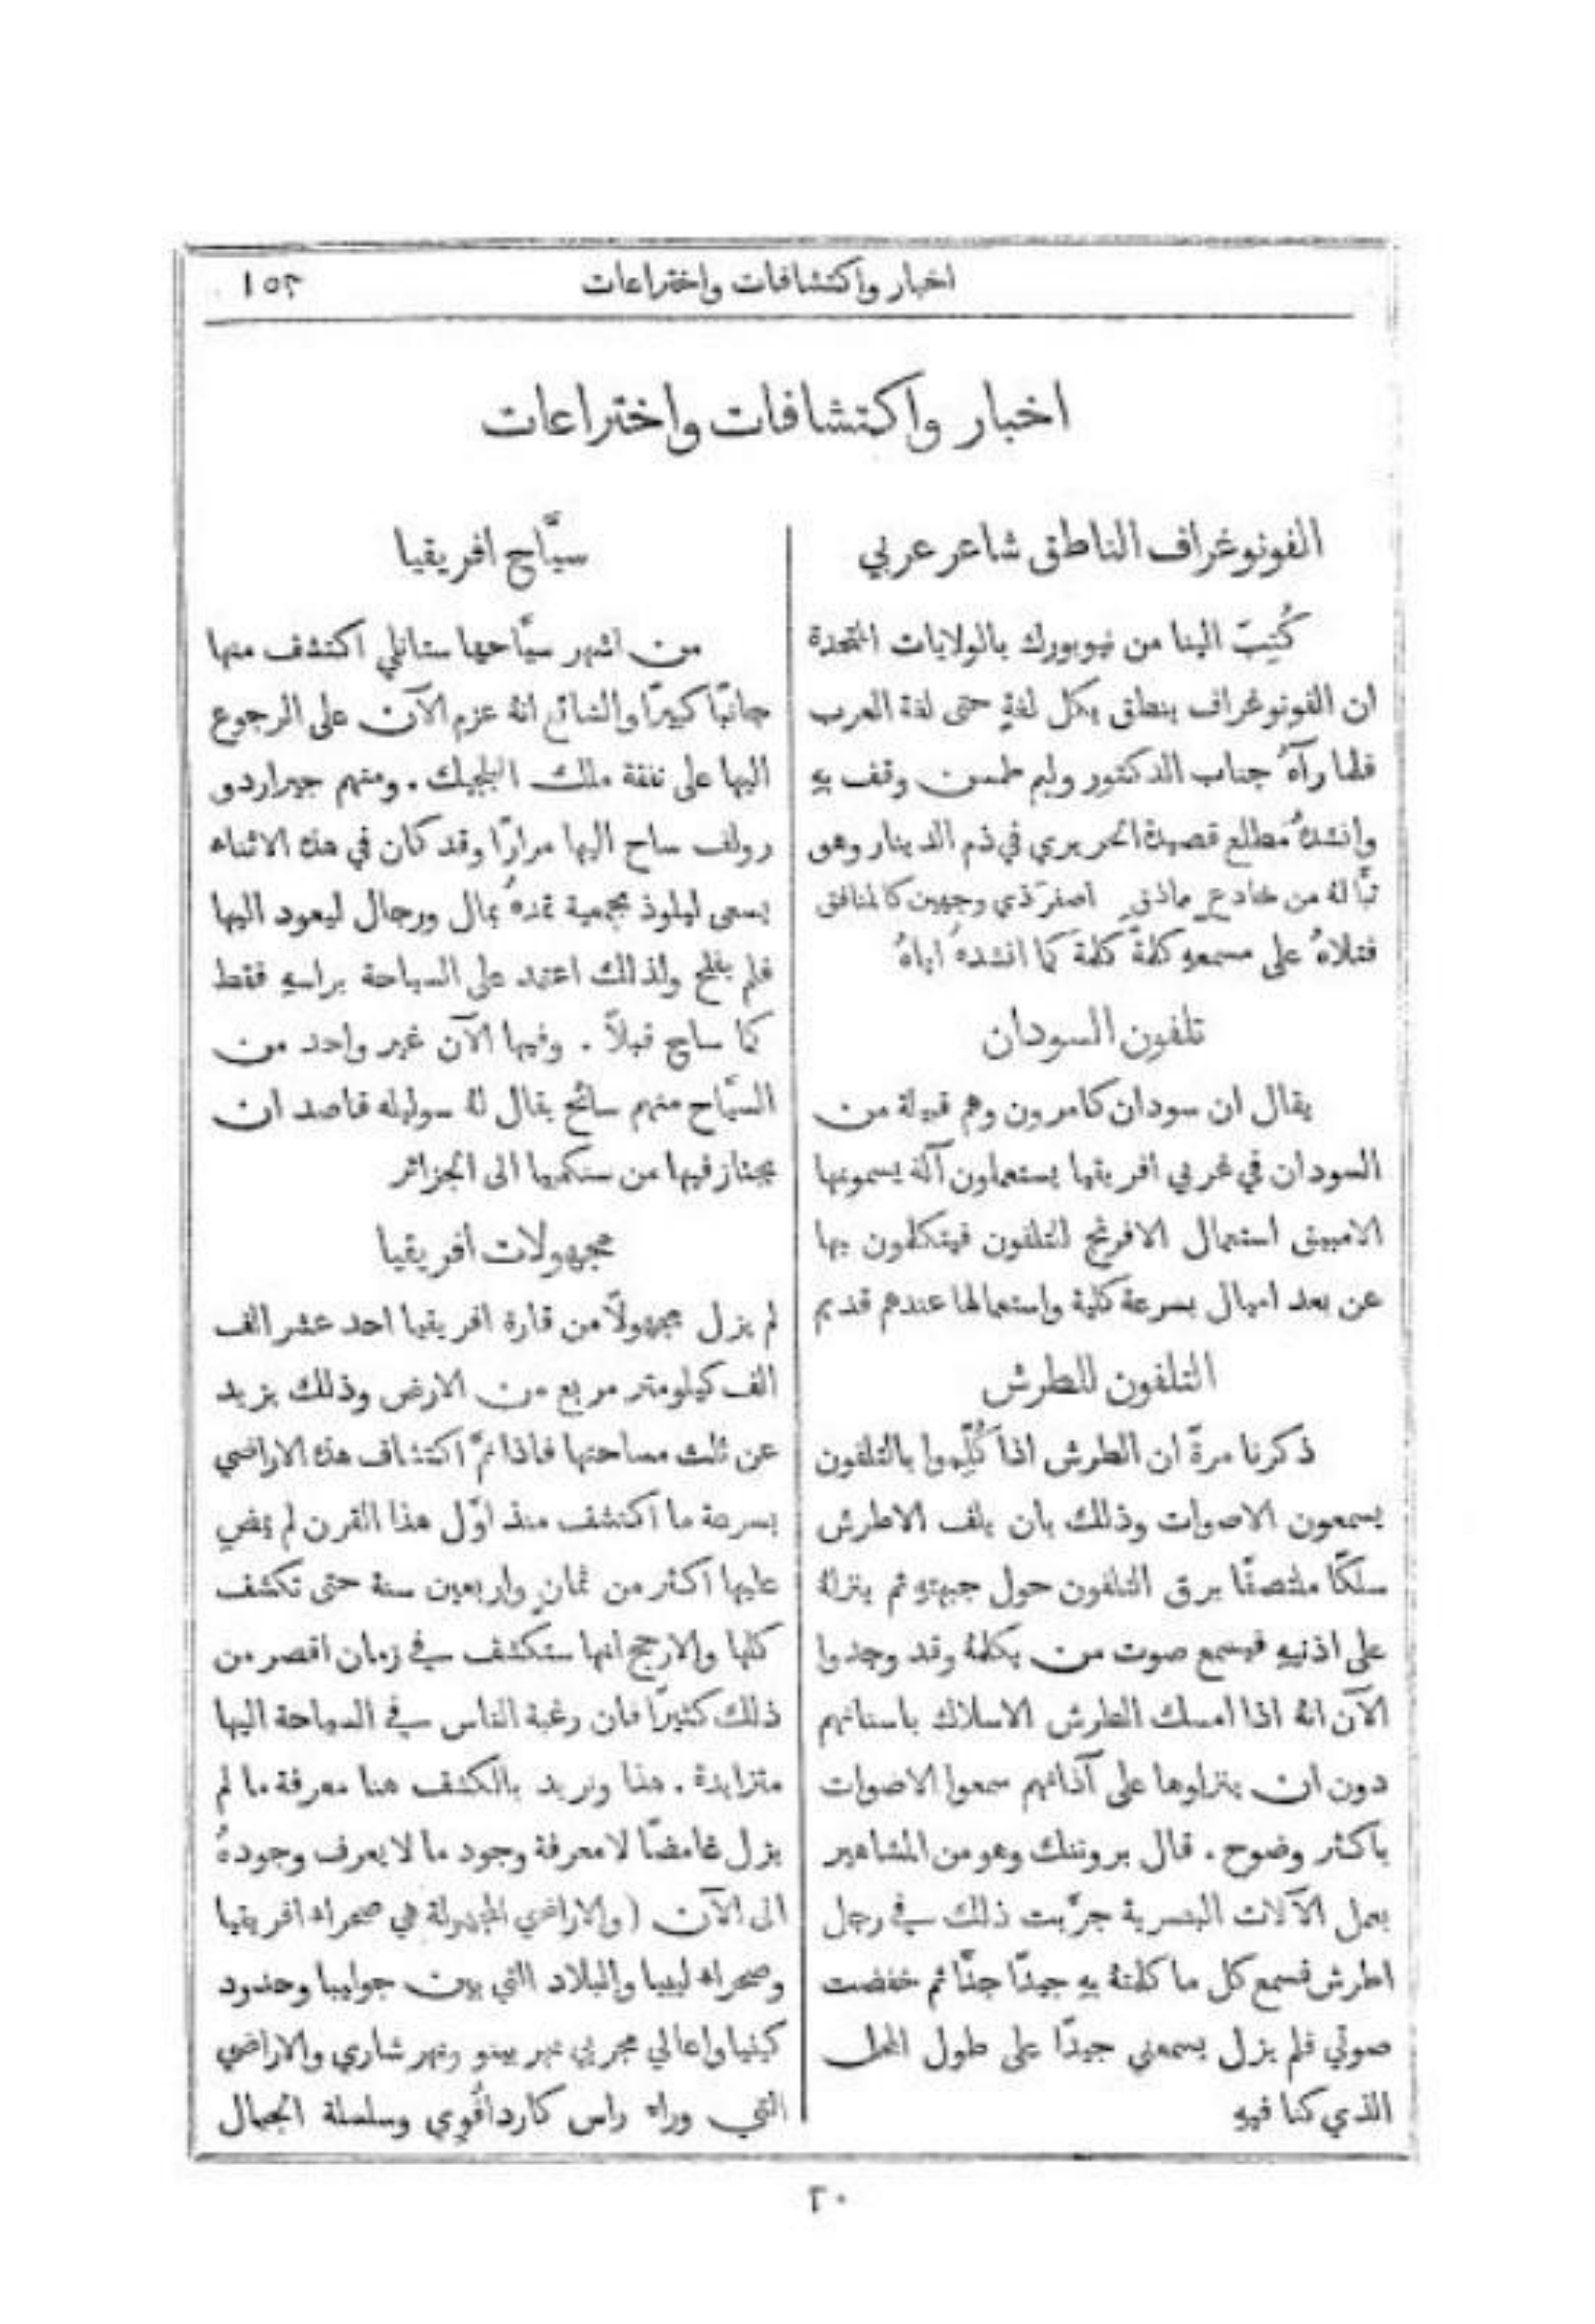 اخبار واكتشافات واختراعات
١٥٣
اخبار واكتشافات واختراعات
الفونوغراف الناطق شاعر عربي
كُتِبَ الينا من نيويورك بالولايات المتحدة
ان الفونوغراف ينطق بكل لغةٍ حتى لغة العرب
فلما رآهُ جناب الدكتور وليم طمسن وقف بهِ
وانشدهُ مطلع قصيدة الحريري في ذم الدينار وهو
تبًّا لهُ من خادعٍ ماذقِ اصفرَ ذي وجهين كالمنافقِ
فتلاهُ على مسمعهِ كلمةً كلمة كما انشدهُ اياهُ
تلفون السودان
يقال ان سودان كامرون وهم قبيلة من
السودان في غربي افريقيا يستعملون آلة يسمونها
الامبيق استعمال الافرنج للتلفون فيتكلمون بها
عن بعد اميال بسرعة كلية واستعمالها عندهم قديم
التلفون للطرش
ذكرنا مرةً ان الطرش اذا كُلِّموا بالتلفون
يسمعون الاصوات وذلك بان يلف الاطرش
سلكًا ملتصقًا برق التلفون حول جبهتهِ ثم ينزلهُ
على اذنيهِ فيسمع صوت من يكلمهُ وقد وجدوا
الآن انهُ اذا امسك الطرش الاسلاك باسنانهم
دون ان ينزلوها على آذانهم سمعوا الاصوات
باكثر وضوح . قال بروننك وهو من المشاهير
بعمل الآلات البصرية جرَّبت ذلك في رجل
اطرش فسمع كل ما كلمتهُ بهِ جيدًا جدًّا ثم خفضت
صوتي فلم يزل يسمعني جيدًا على طول المحل
الذي كنا فيهِ
سيَّاح افريقيا
من اشهر سيَّاحها ستانلي اكتشف منها
جانبًا كبيرًا والشائع انهُ عزم الآن على الرجوع
اليها على نفقة ملك البلجيك . ومنهم جيراردو
رولف ساح اليها مرارًا وقد كان في هذه الاثناء
يسعى ليلوذ بجمعية تمدهُ بمال ورجال ليعود اليها
فلم يفلح ولذلك اعتمد على السياحة براسهِ فقط
كما ساح قبلاً . وفيها الآن غير واحد من
السيَّاح منهم سائح يقال لهُ سوليله قاصد ان
يجتاز فيها من سنكمبيا الى الجزائر
مجهولات افريقيا
لم يزل مجهولاً من قارة افريقيا احد عشر الف
الف كيلومتر مربع من الارض وذلك يزيد
عن ثلث مساحتها فاذا تمَّ اكتشاف هذه الاراضي
بسرعة ما اكتشف منذ اوَّل هذا القرن لم يمضِ
عليها اكثر من ثمانٍ واربعين سنة حتى تكشف
كلها والارجح انها ستكشف في زمان اقصر من
ذلك كثيرًا فان رغبة الناس في السياحة اليها
متزايدة . هذا ونريد بالكشف هنا معرفة ما لم
يزل غامضًا لا معرفة وجود ما لا يعرف وجودهُ
الى الآن (والاراضي المجهولة هي صحراء افريقيا
وصحراء ليبيا والبلاد التي بين جوليبا وحدود
كينيا واعالي مجربي نهر بينو ونهر شاري والاراضي
التي وراء راس كاردافُوي وسلسلة الجبال
٢٠